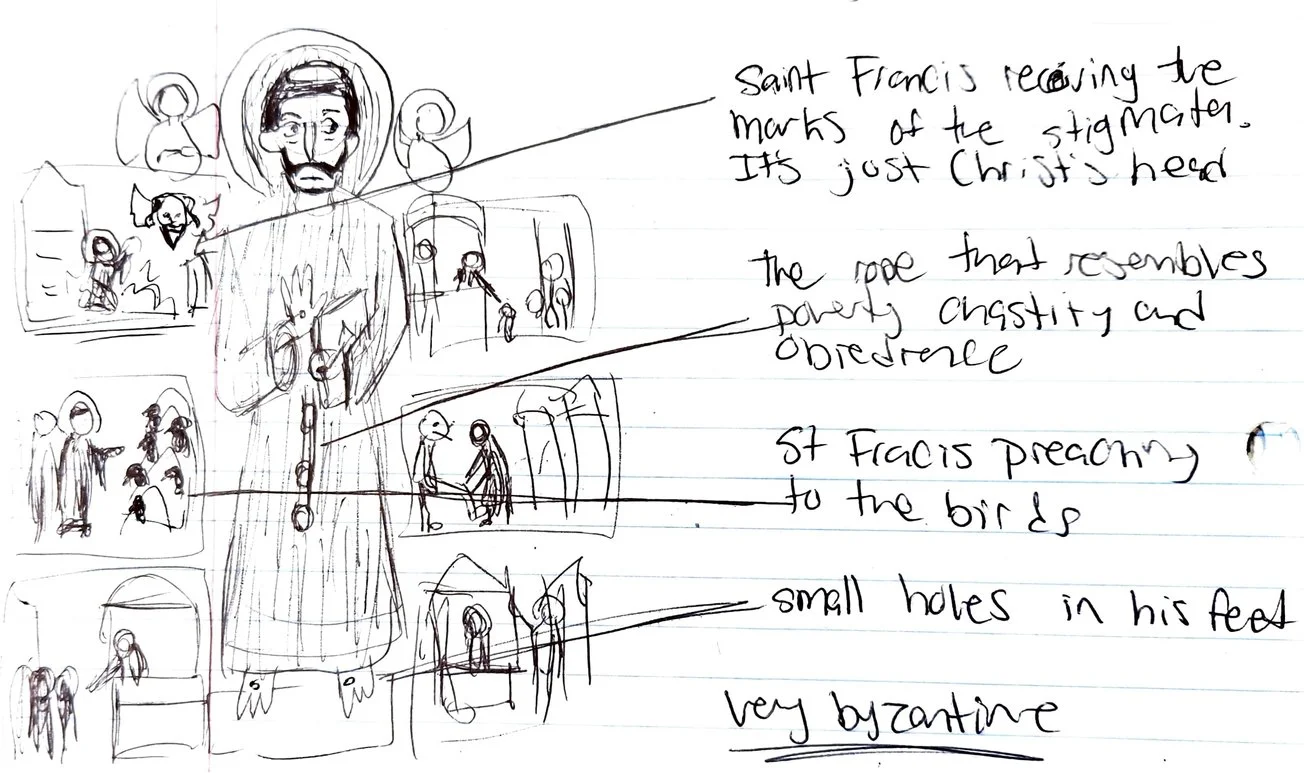 Saint Francis receiving the
marks of the stigmata.
It's just Christ's head
the rope that resembles
poverty chastity and
Obiedience
St Fracis preaching
to the birds
small holes in his feet
very byzantine